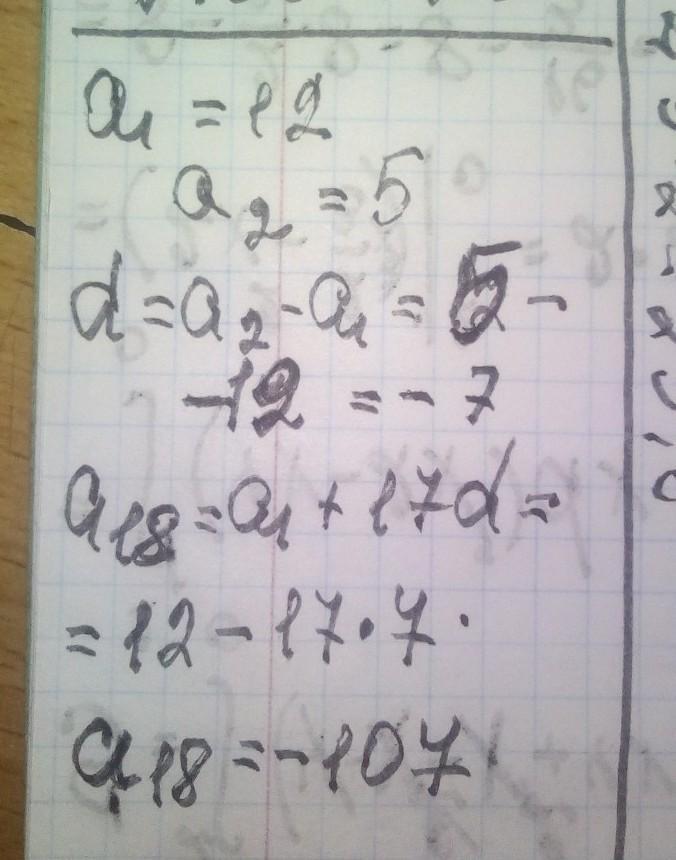 a₁ = 12
a₂ = 5
d = a₂ - a₁ = 5 -
- 12 = - 7
a₁₈ = a₁ + 17d =
= 12 - 17 · 7 ·
a₁₈ = - 107